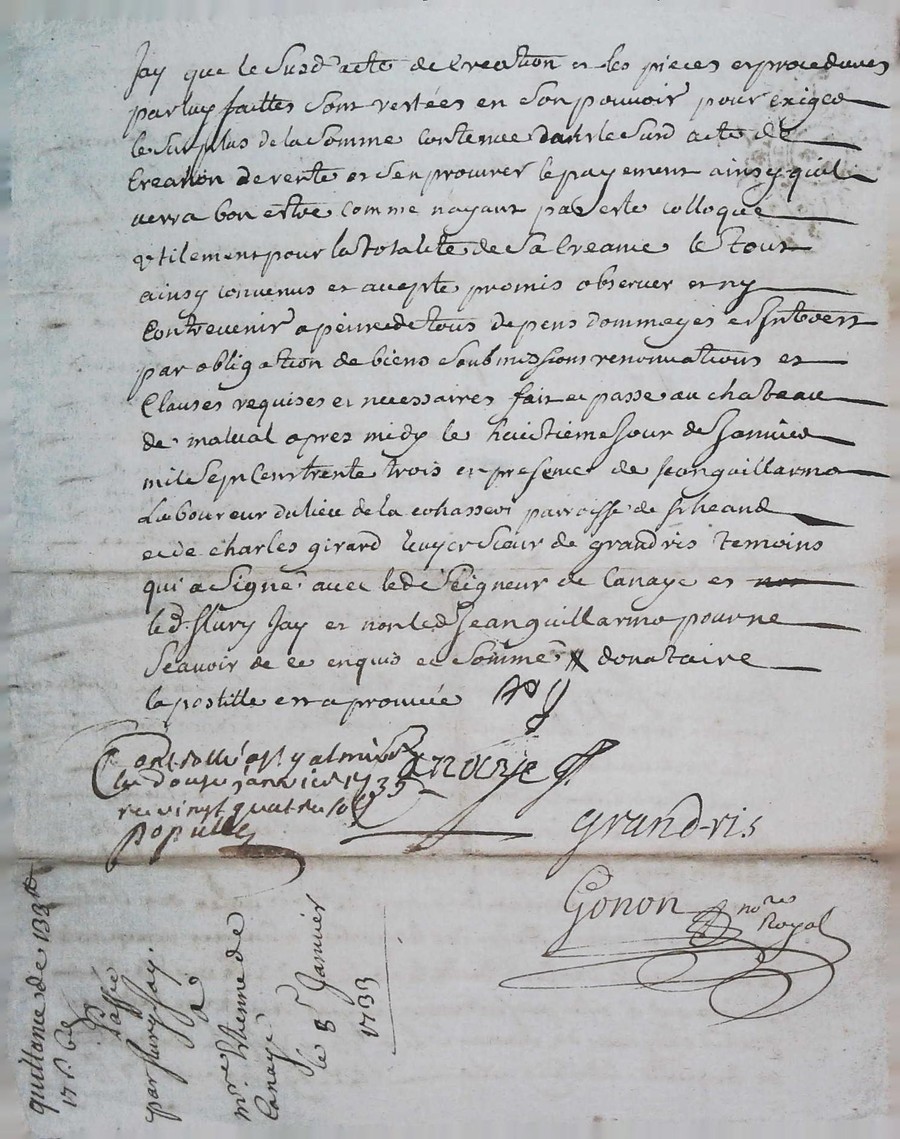 Jay que le Susd acte de Creation et les pieces et procedures
par luy faittes Sont restées en Son pouvoir pour exiger
le Surplus de la Somme Contenue dans le Susd acte de
Creation de rente et S'en procurer le payement ainsy quil
verra bon estre comme nayant pas esté colloqué
utilement pour la totalité de Sa Creance le tout
ainsy convenus et accepté promis observer et ny
Contrevenir a peine de tous depens dommages et Intherest
par obligation de biens Soubmissions renonciations et
Clauses requises et necessaires fait et passé au chateau
de malval apres midy le huictieme Jour de Janvier
mil Sept Cent trente trois en presence de Jean guillarmo
Laboureur du lieu de la parroisse de St heand
et de Charles girard Escuyer Sieur de grandris temoins
qui a Signé avec led Seigneur de Canaye et
led flury Jay et non led Jean guillarmo pour ne
Scavoir de ce enquis et Sommé donataire
la postille est aprouvée
Controllé a St galmier
le douze janvier 1733
re vingt quatre sols
Canaye
grand-ris
Gonon nore Royal
quittance de 133ᴸ
17 s. 6 d
Passée
par flury Jay.
a
mre Etienne de
Canaye
le 8 Janvier
1733